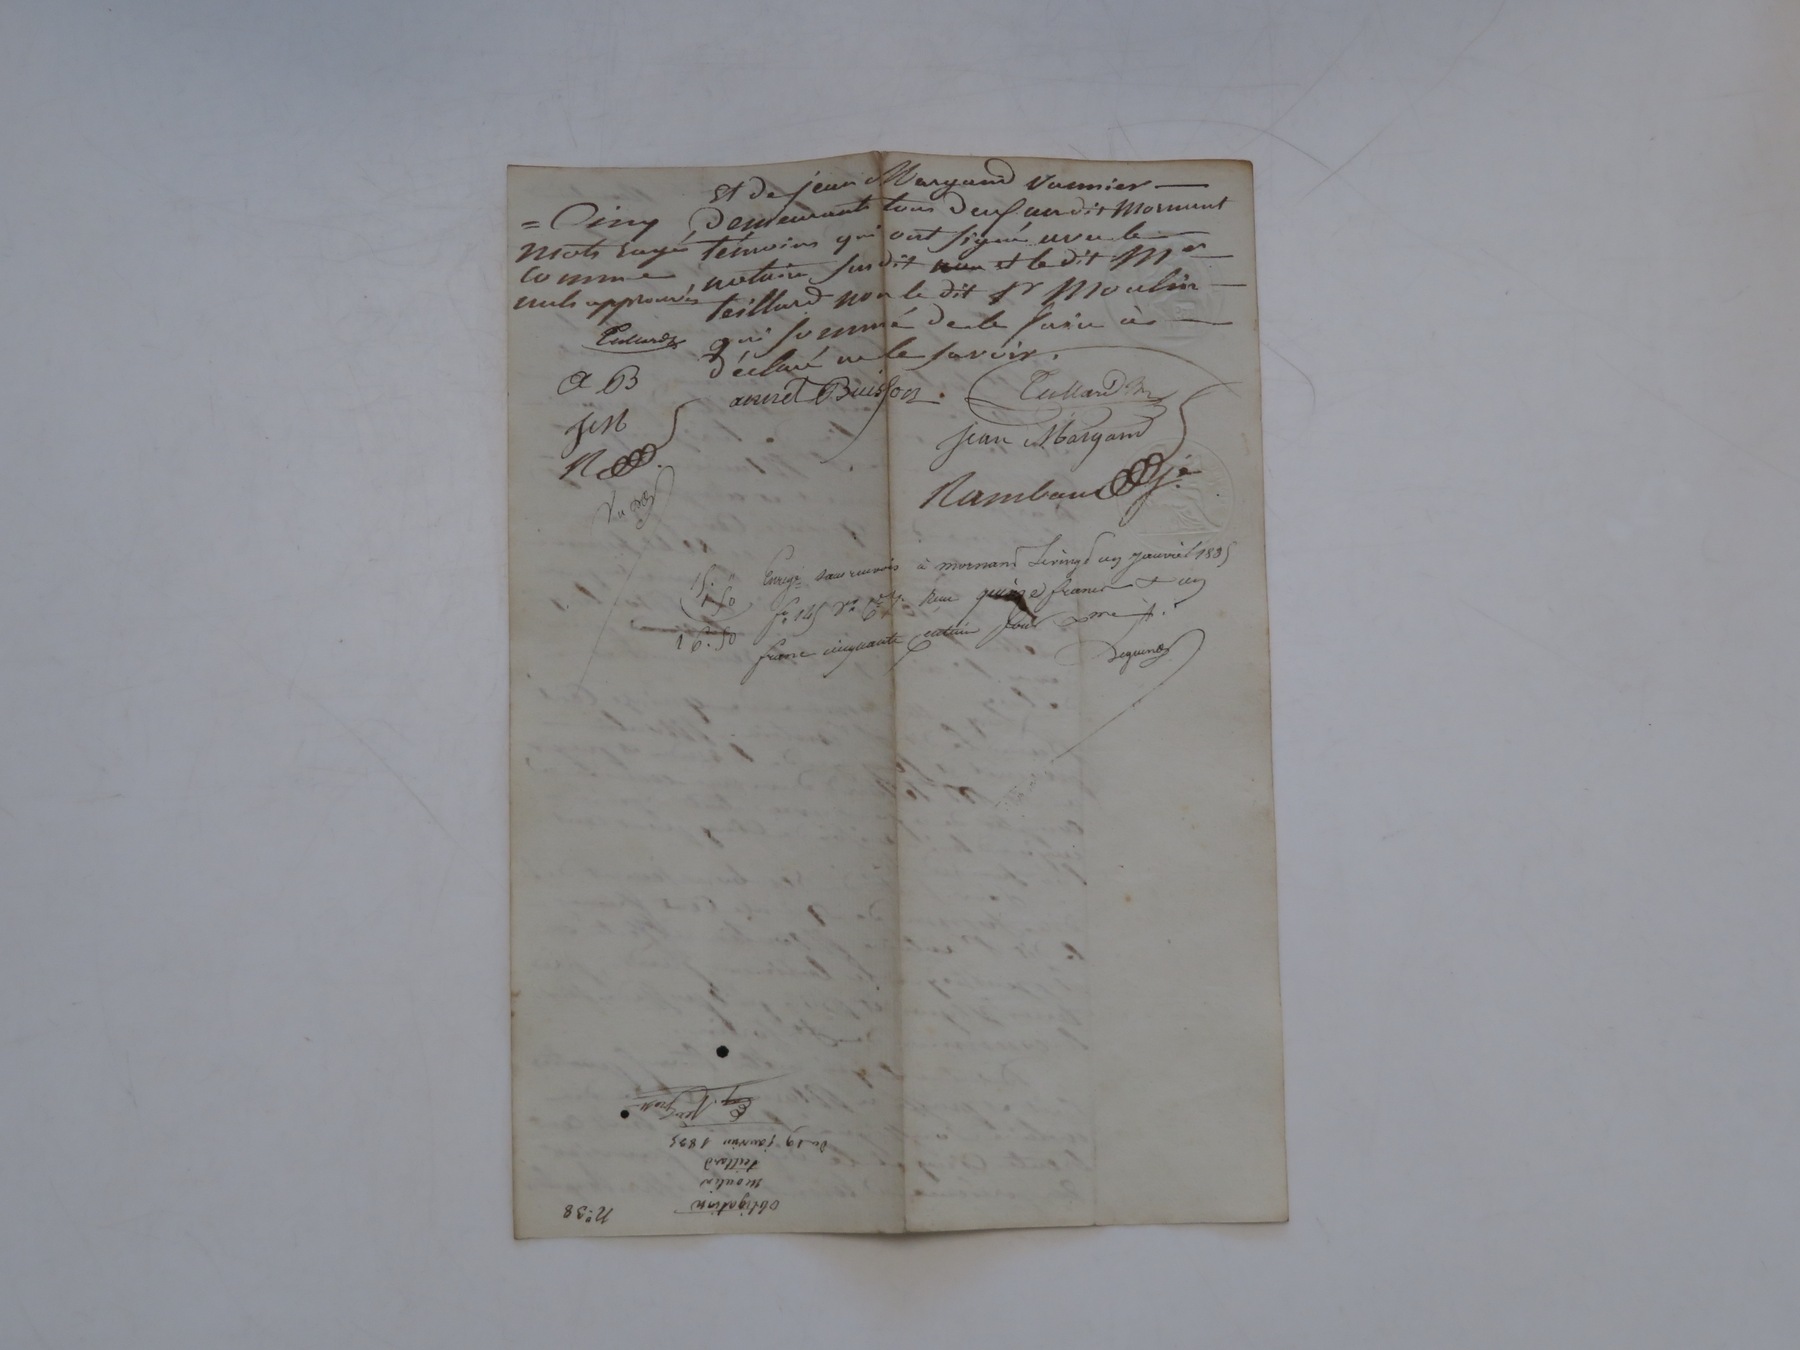 et de jean Margand vannier —
demeurants tous deux au dit Mornant
témoins qui ont signé avec le —
notaire susdit et le dit Mer —
teillard non le dit Sr Moulin —
qui sommé de le faire à —
déclaré ne le savoir.
= Cinq
mots rayés
comme
nuls approuvés
Teillard
A B
J M
R
annet Buisson.
Teillard
Jean Margand
Rambaud
15. "
1 50
16. 50
Enregé sans renvois à mornant Le vingt un janvier 1835
fo 145 Vo Reçu quinze francs et un
franc cinquante centime pour
N° 38
obligation
moulin
teillard
du 19 janvier 1835